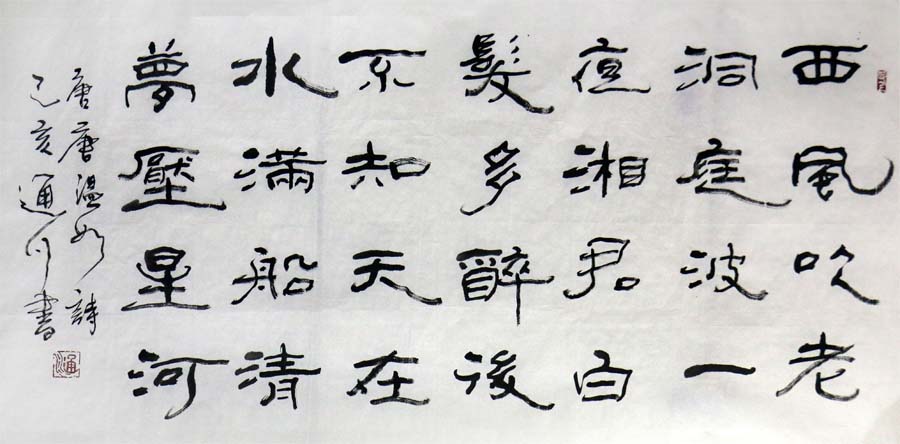 西風吹老
洞庭波一
夜湘君白
髮多醉後
不知天在
水滿船清
夢壓星河
唐唐温如詩
己亥通川書